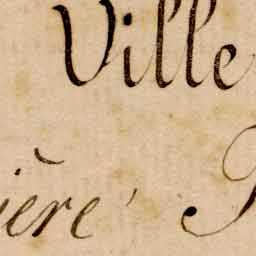 Ville
ière